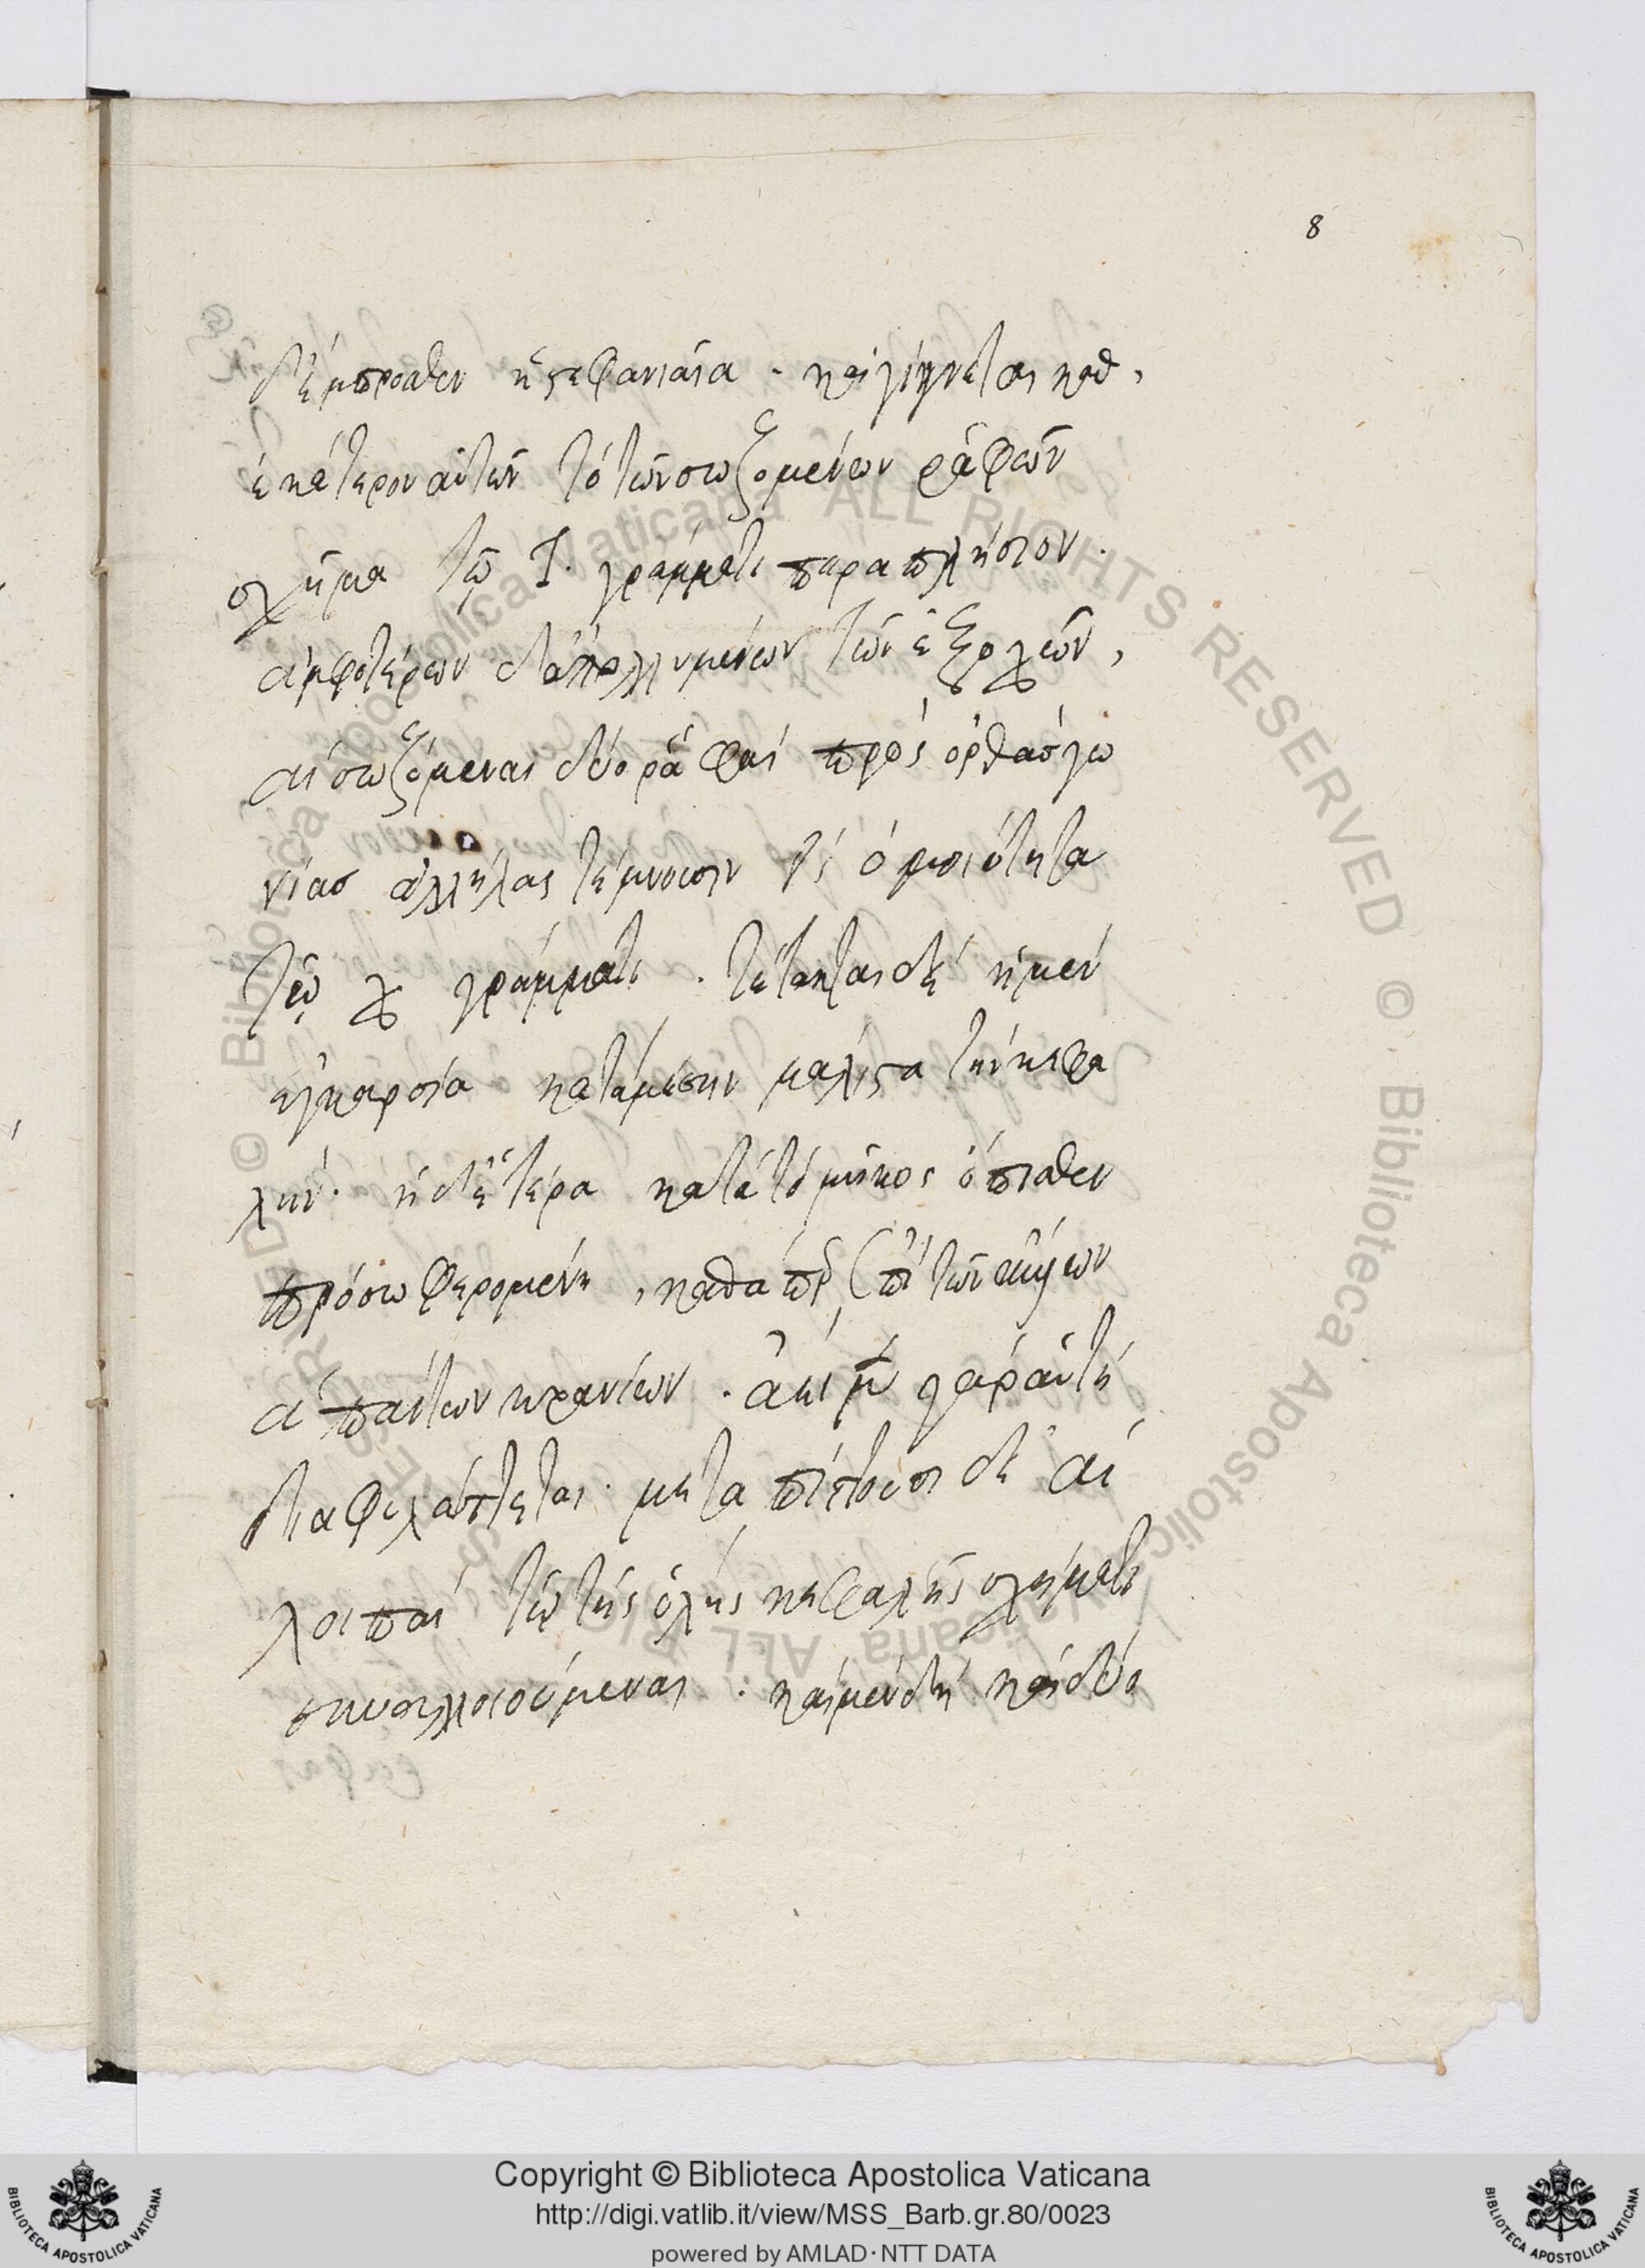 8
δ' ἔμπροσθεν ἡ στεφανιαία · καὶ γίγνεται καθ'
ἑκάτερον αὐτῶν τὸ τῶν σωζομένων ῥαφῶν
σχῆμα τῷ Τ. γράμματι παραπλήσιον ·
ἀμφοτέρων δ' ἀπολλυμένων τῶν ἐξοχῶν,
αἱ σωζόμεναι δύο ῥαφαὶ πρὸς ὀρθὰς γω
νίας ἀλλήλας τέμνουσιν εἰς ὁμοιότητα
τῷ χ γράμματι · τέτακται δὲ ἡ μὲν
ἐγκαρσία κατὰ μέσην μάλιστα τὴν κεφα
λήν · ἡ δ' ἑτέρα κατὰ τὸ μῆκος ὄπισθεν
πρόσω φερομένη, καθάπερ ἐπὶ τῶν ἄλλων
ἁπάντων κρανίων · ἀεὶ μὲν γὰρ αὐτὴ
διαφυλάττεται · μεταπίπτουσι δὲ αἱ
λοιπαὶ τῷ τῆς ὅλης κεφαλῆς σχήματι
συναλλοιούμεναι · καὶ μὲν δὴ καὶ δύο
Copyright © Biblioteca Apostolica Vaticana
http://digi.vatlib.it/view/MSS_Barb.gr.80/0023
powered by AMLAD·NTT DATA